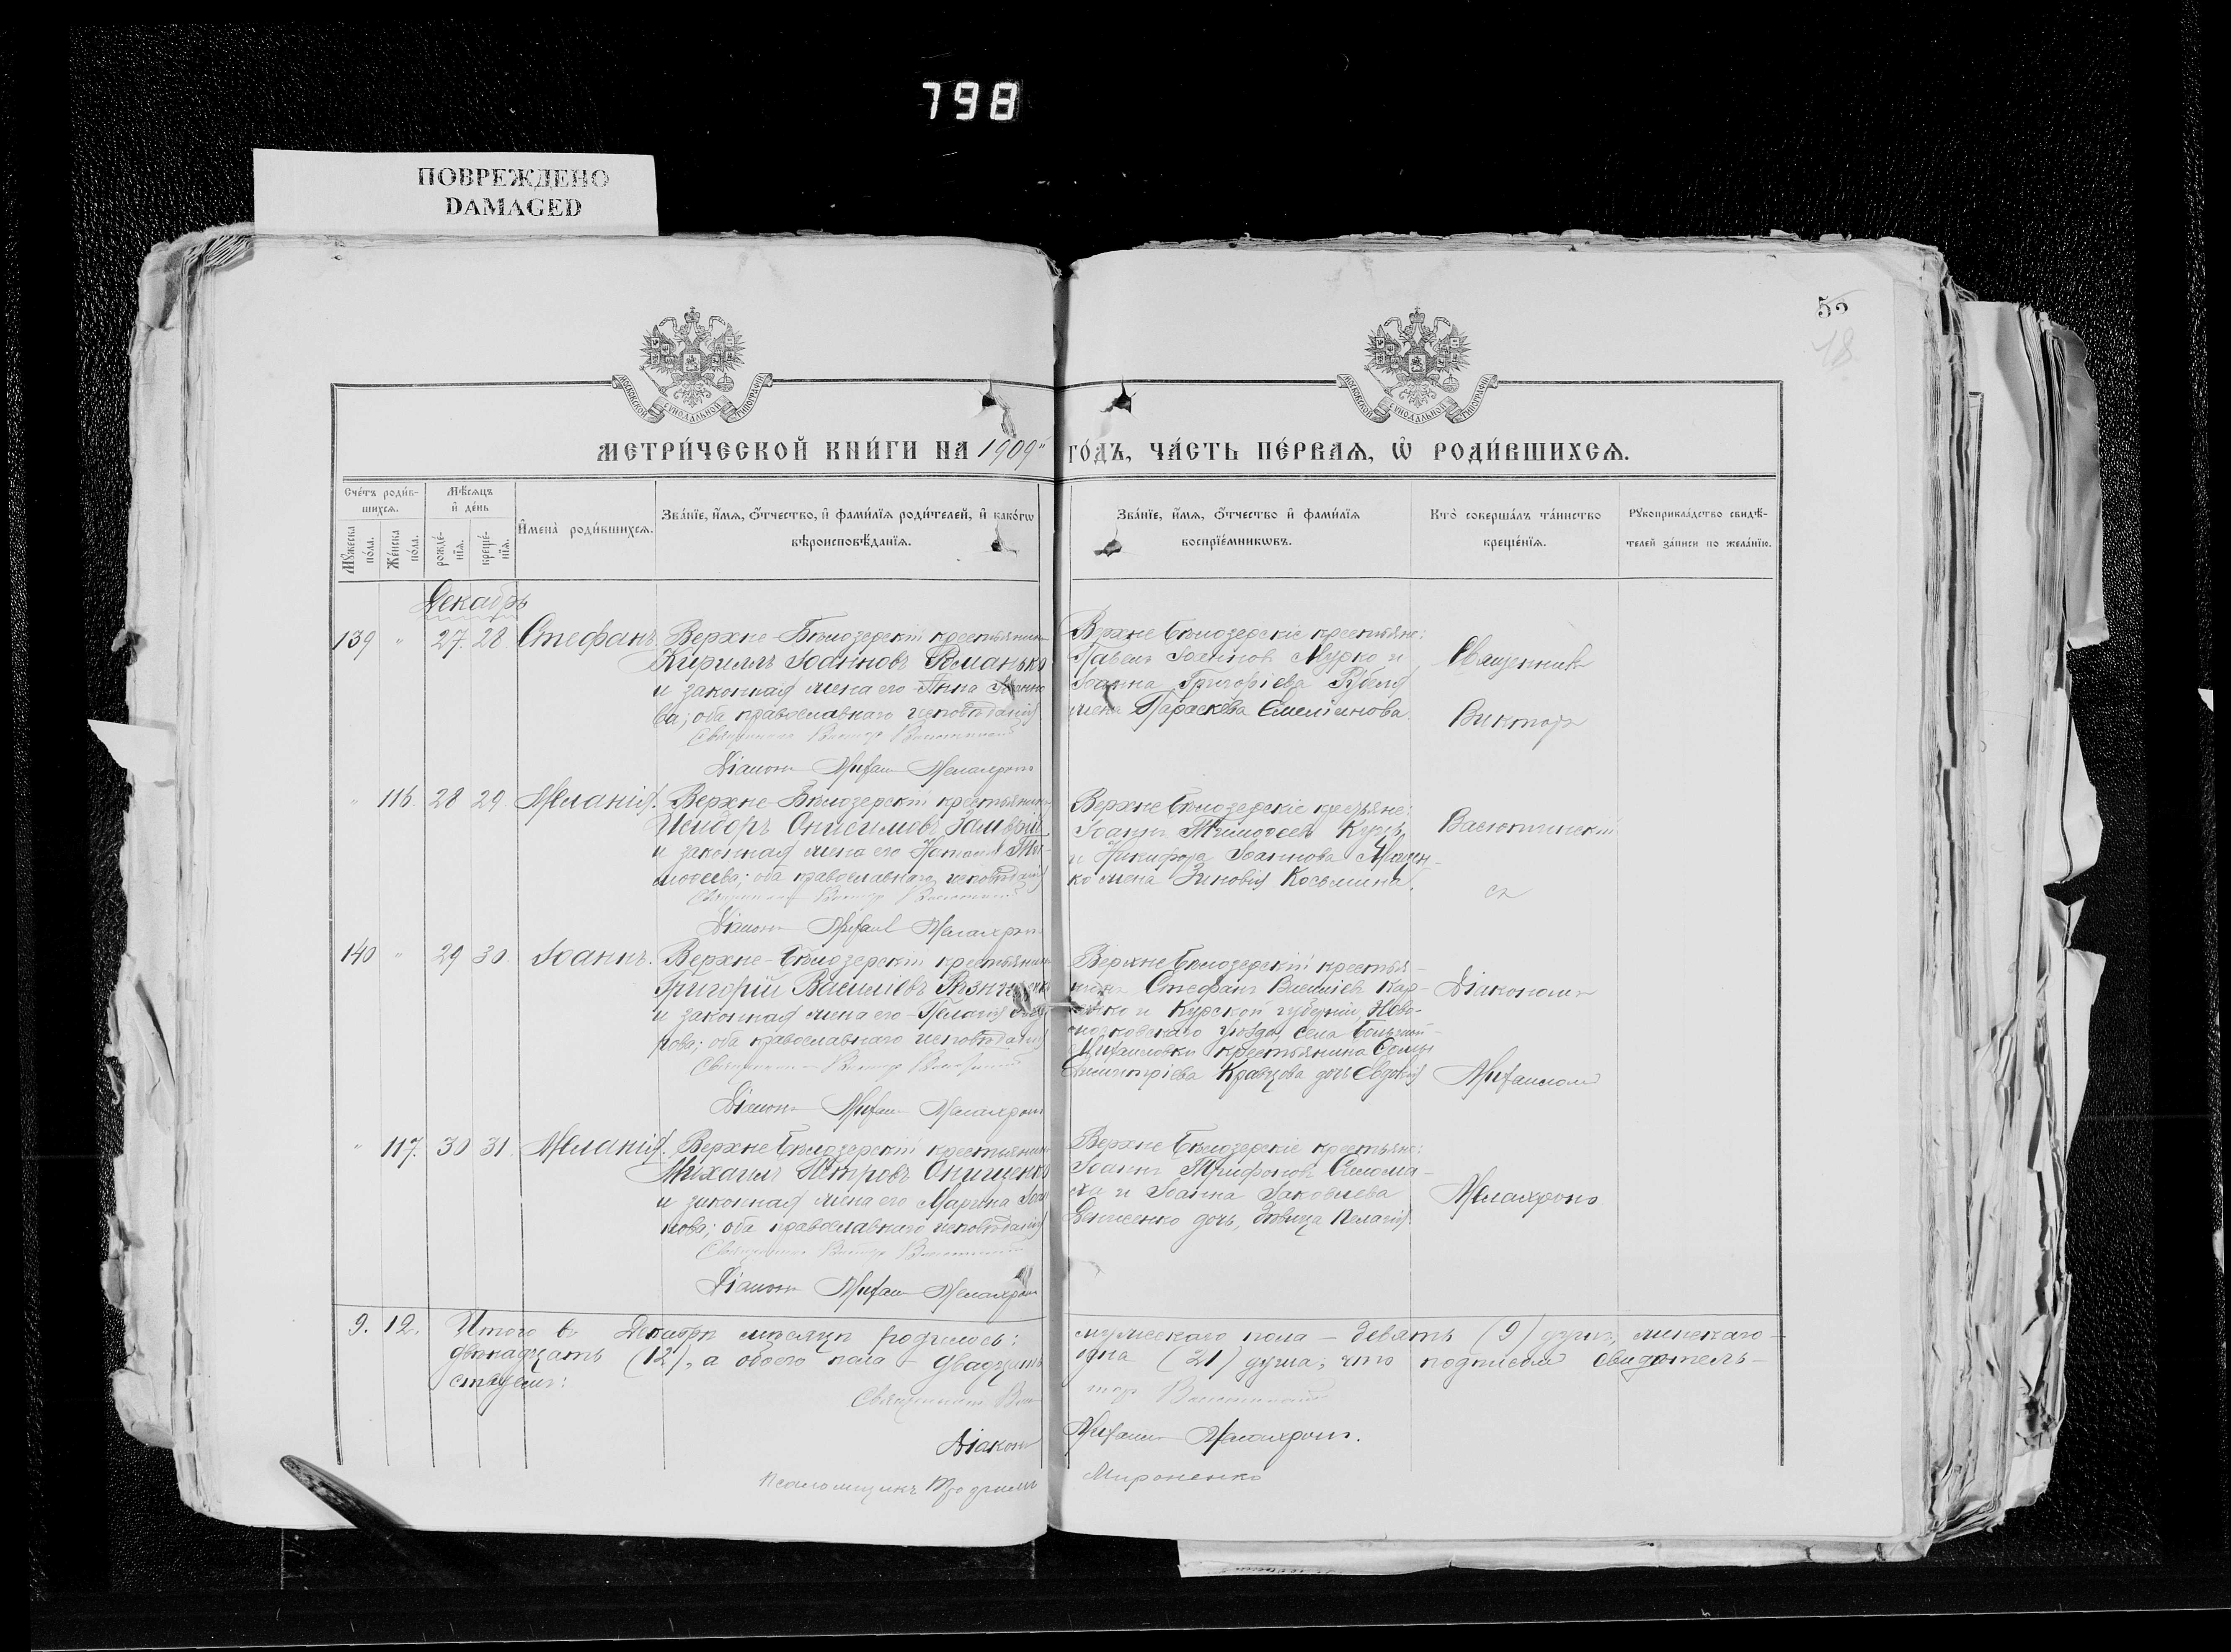 798
ПОВРЕЖДЕНО
DAMAGED
53
18
МОСКОВСКОЙ СѴНОДАЛЬНОЙ ТИПОГРАФІИ
МОСКОВСКОЙ СѴНОДАЛЬНОЙ ТИПОГРАФІИ
МЕТРИ́ЧЕСКОЙ КНИ́ГИ НА 1909й ГО́ДЪ, ЧА́СТЬ ПЕ́РВАѦ, Ѡ҆ РОДИ́ВШИХСѦ.
Сче́тъ роди́в-
шихсѧ.
Мꙋ́жеска по́ла.
Же́нска по́ла.
Мѣ́сѧцъ
и҆ де́нь
рожде́-
нїѧ.
креще́-
нїѧ.
И҆мена̀ роди́вшихсѧ.
Зва́нїе, и҆́мѧ, ѻ҆́тчество, и҆ фами́лїѧ роди́телей, и҆ како́гѡ
вѣроисповѣ́данїѧ.
Зва́нїе, и҆́мѧ, ѻ҆́тчество и҆ фами́лїѧ
воспрїе́мникѡвъ.
Кто̀ соверша́лъ та́инство
креще́нїѧ.
Рꙋкоприкла́дство свидѣ́-
телей за́писи по жела́нїю.
Декабрь
139 " 27. 28. Стефанъ. Верхне-Бѣлозерскій крестьянинъ
Кириллъ Іоанновъ Романько
и законная жена его Анна Іоанно
ва; оба православнаго исповѣданія
Священникъ Викторъ
Діаконъ Михаилъ Мелахронъ
Верхне Бѣлозерскіе крестьяне:
Павелъ Іоанновъ Мурко и
Іоанна Григоріева
жена Параскева Емеліанова.
Священникъ
Викторъ
" 116. 28 29. Меланія. Верхне-Бѣлозерскій крестьянинъ
Исидоръ Онисимовъ
и законная жена его Наталія Ти-
моѳеева; оба православнаго исповѣданія
Священникъ Викторъ
Діаконъ Михаилъ Мелахронъ
Верхне Бѣлозерскіе крестьяне:
Іоаннъ Тимоѳеевъ Куцъ
и Никифора Іоаннова
ко жена Зиновія Косьмина.
съ
140 " 29 30. Іоаннъ. Верхне-Бѣлозерскій крестьянинъ
Григорій Василіевъ
и законная жена его Пелагія
рова; оба православнаго исповѣданія
Священникъ Викторъ
Діаконъ Михаилъ Мелахронъ
Верхне Бѣлозерскій крестья-
нинъ Стефанъ Василіевъ Кар-
и Курской губерніи, Ново-
оскольскаго уѣзда, села Большой-
Михайловки крестьянина Ѳомы
Димитріева Кравцова дочь Евдокія
Діакономъ
Михаиломъ
" 117. 30 31. Меланія. Верхне Бѣлозерскій крестьянинъ
Михаилъ Петровъ Онищенко
и законная жена его Марина Іоан
нова; оба православнаго исповѣданія
Священникъ Викторъ
Діаконъ Михаилъ Мелахронъ
Верхне Бѣлозерскіе крестьяне:
Іоаннъ Трифоновъ
ха и Іоанна Іаковлева
Денисенко дочь, дѣвица Пелагія.
Мелахрономъ
9. 12. Итого въ Декабрѣ мѣсяцѣ родилось: мужескаго пола – девять (9) душъ, женскаго –
двѣнадцать (12), а обоего пола – двадцать одна (21) душа, что подписомъ свидѣтель-
ствуемъ:
Священникъ Викторъ
Діаконъ Михаилъ Мелахронъ.
Псаломщикъ Мироненко